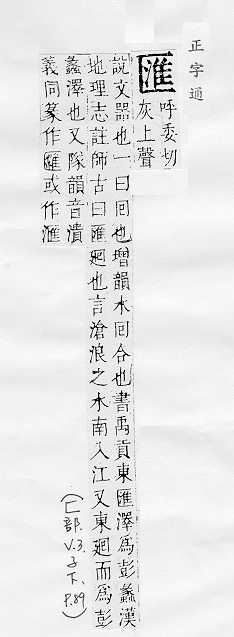 正字通
匯
呼委切
灰上聲
說文器也一曰回也增韻水回合也書禹貢東匯澤爲彭蠡漢
地理志註師古曰匯廻也言滄浪之水南入江又東廻而爲彭
蠡澤也又隊韻音潰
義同篆作匯或作滙
(匚部.
V.3.
子下、
P.89)